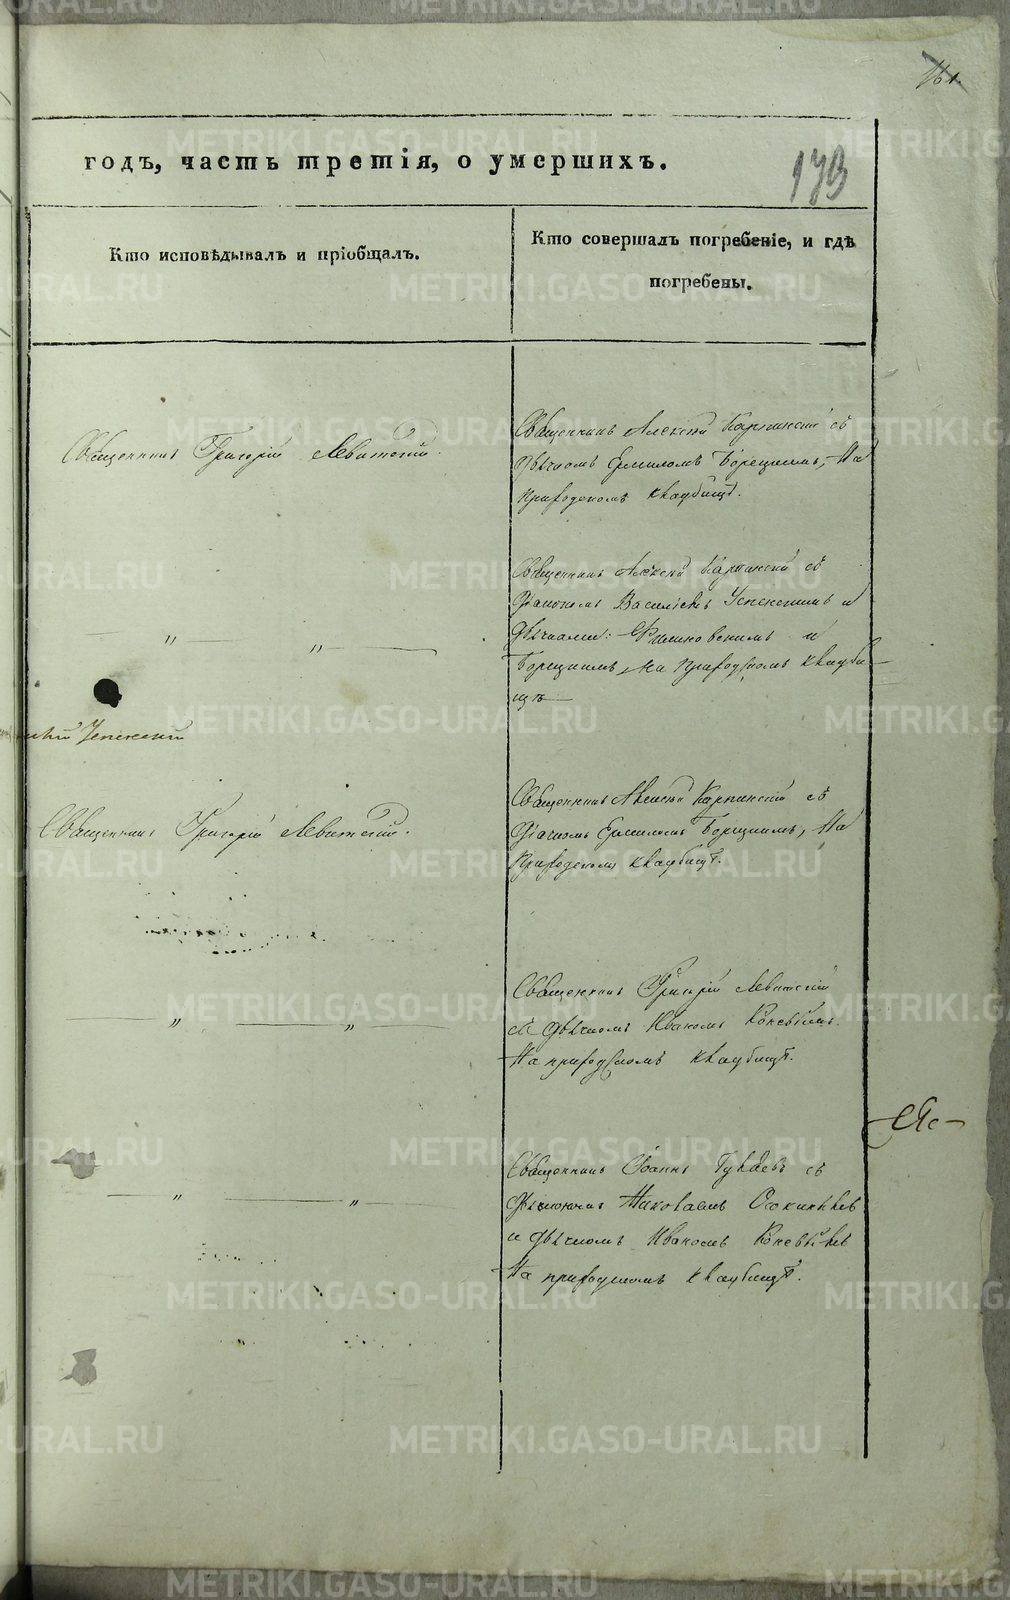 161.
годъ, часть третія, о умершихъ.
173
Кто исповѣдывалъ и пріобщалъ.
Кто совершалъ погребеніе, и гдѣ
погребены.
Священникъ Григорій Левитскій.
Священникъ Алексій Карпинскій съ
дьячкомъ Ермиломъ Борецкимъ, На
приходскомъ кладбищѣ.
— „ — „ —
Священникъ Алексій Карпинскій съ
Діакономъ Василіемъ Успенскимъ и
дьячками: и
Борецкимъ, на приходскомъ кладби-
щѣ—
Успенскій
Священникъ Григорій Левитскій.
Священникъ Алексій Карпинскій съ
дьячкомъ Ермиломъ Борецкимъ, На
Приходскомъ кладбищѣ.
— „ — „ —
Священникъ Григорій Левитскій
съ дьячкомъ Иваномъ
На приходскомъ кладбищѣ.
— „ — „ —
Священникъ Іоаннъ съ
и дьячкомъ Иваномъ
На приходскомъ кладбищѣ.
METRIKI.GASO-URAL.RU